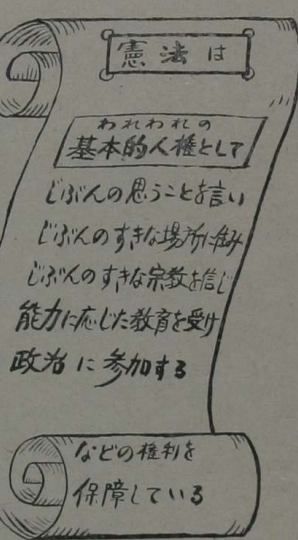 憲法は
われわれの
基本的人権として
じぶんの思うことを言い
じぶんのすきな場所に住み
じぶんのすきな宗教を信じ
能力に応じた教育を受け
政治に参加する
などの権利を
保障している